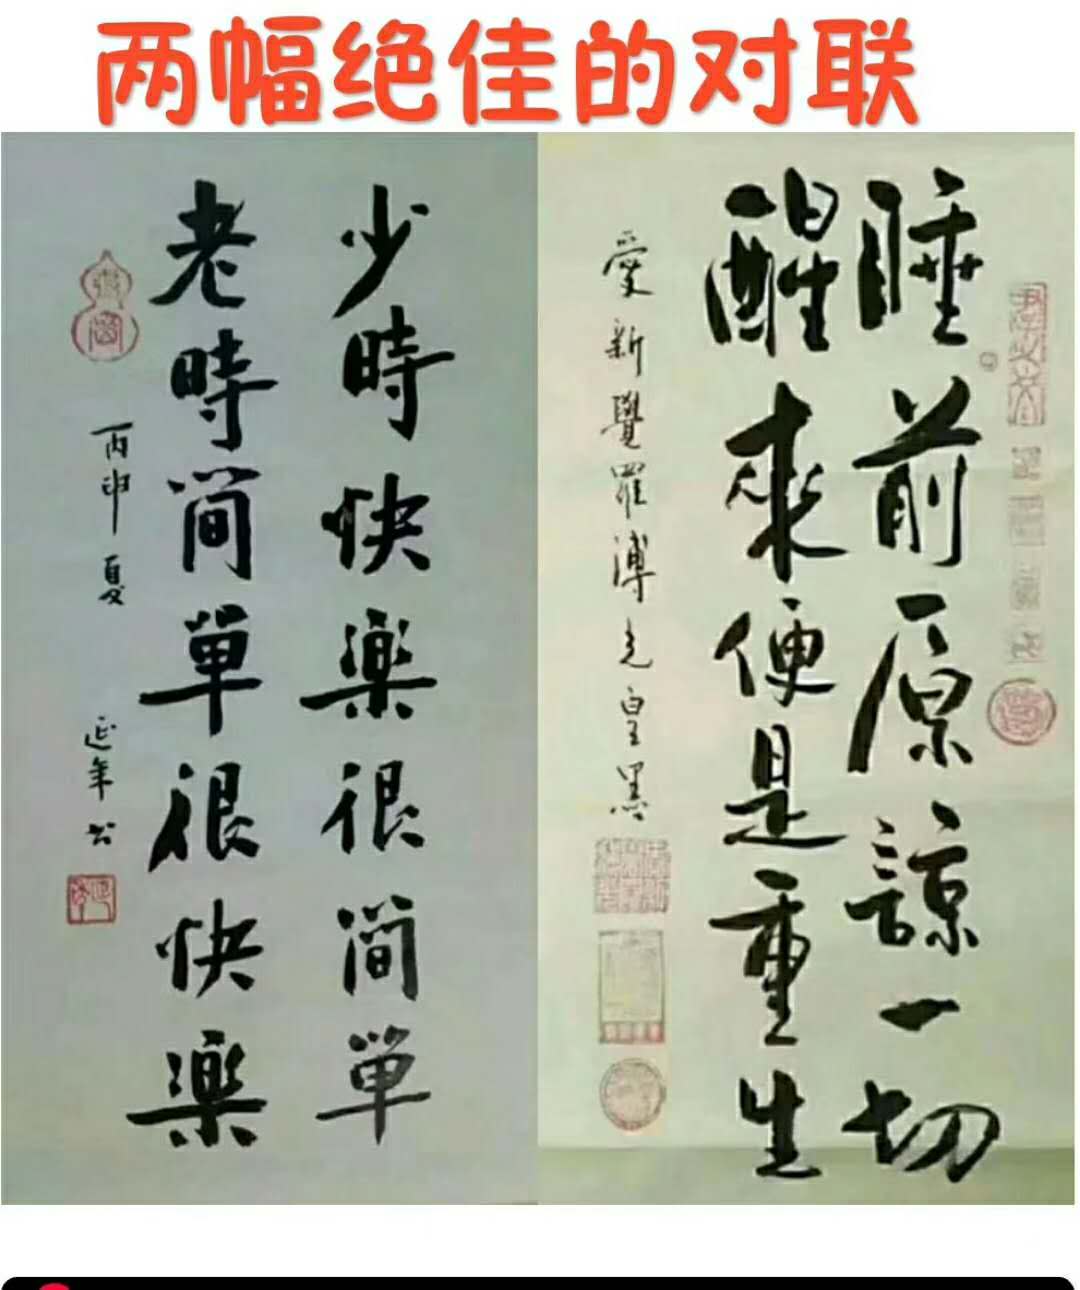 两幅绝佳的对联
少時快樂很簡單
老時簡單很快樂
丙申夏
延年书
睡前原諒一切
醒來便是重生
愛新覺羅溥